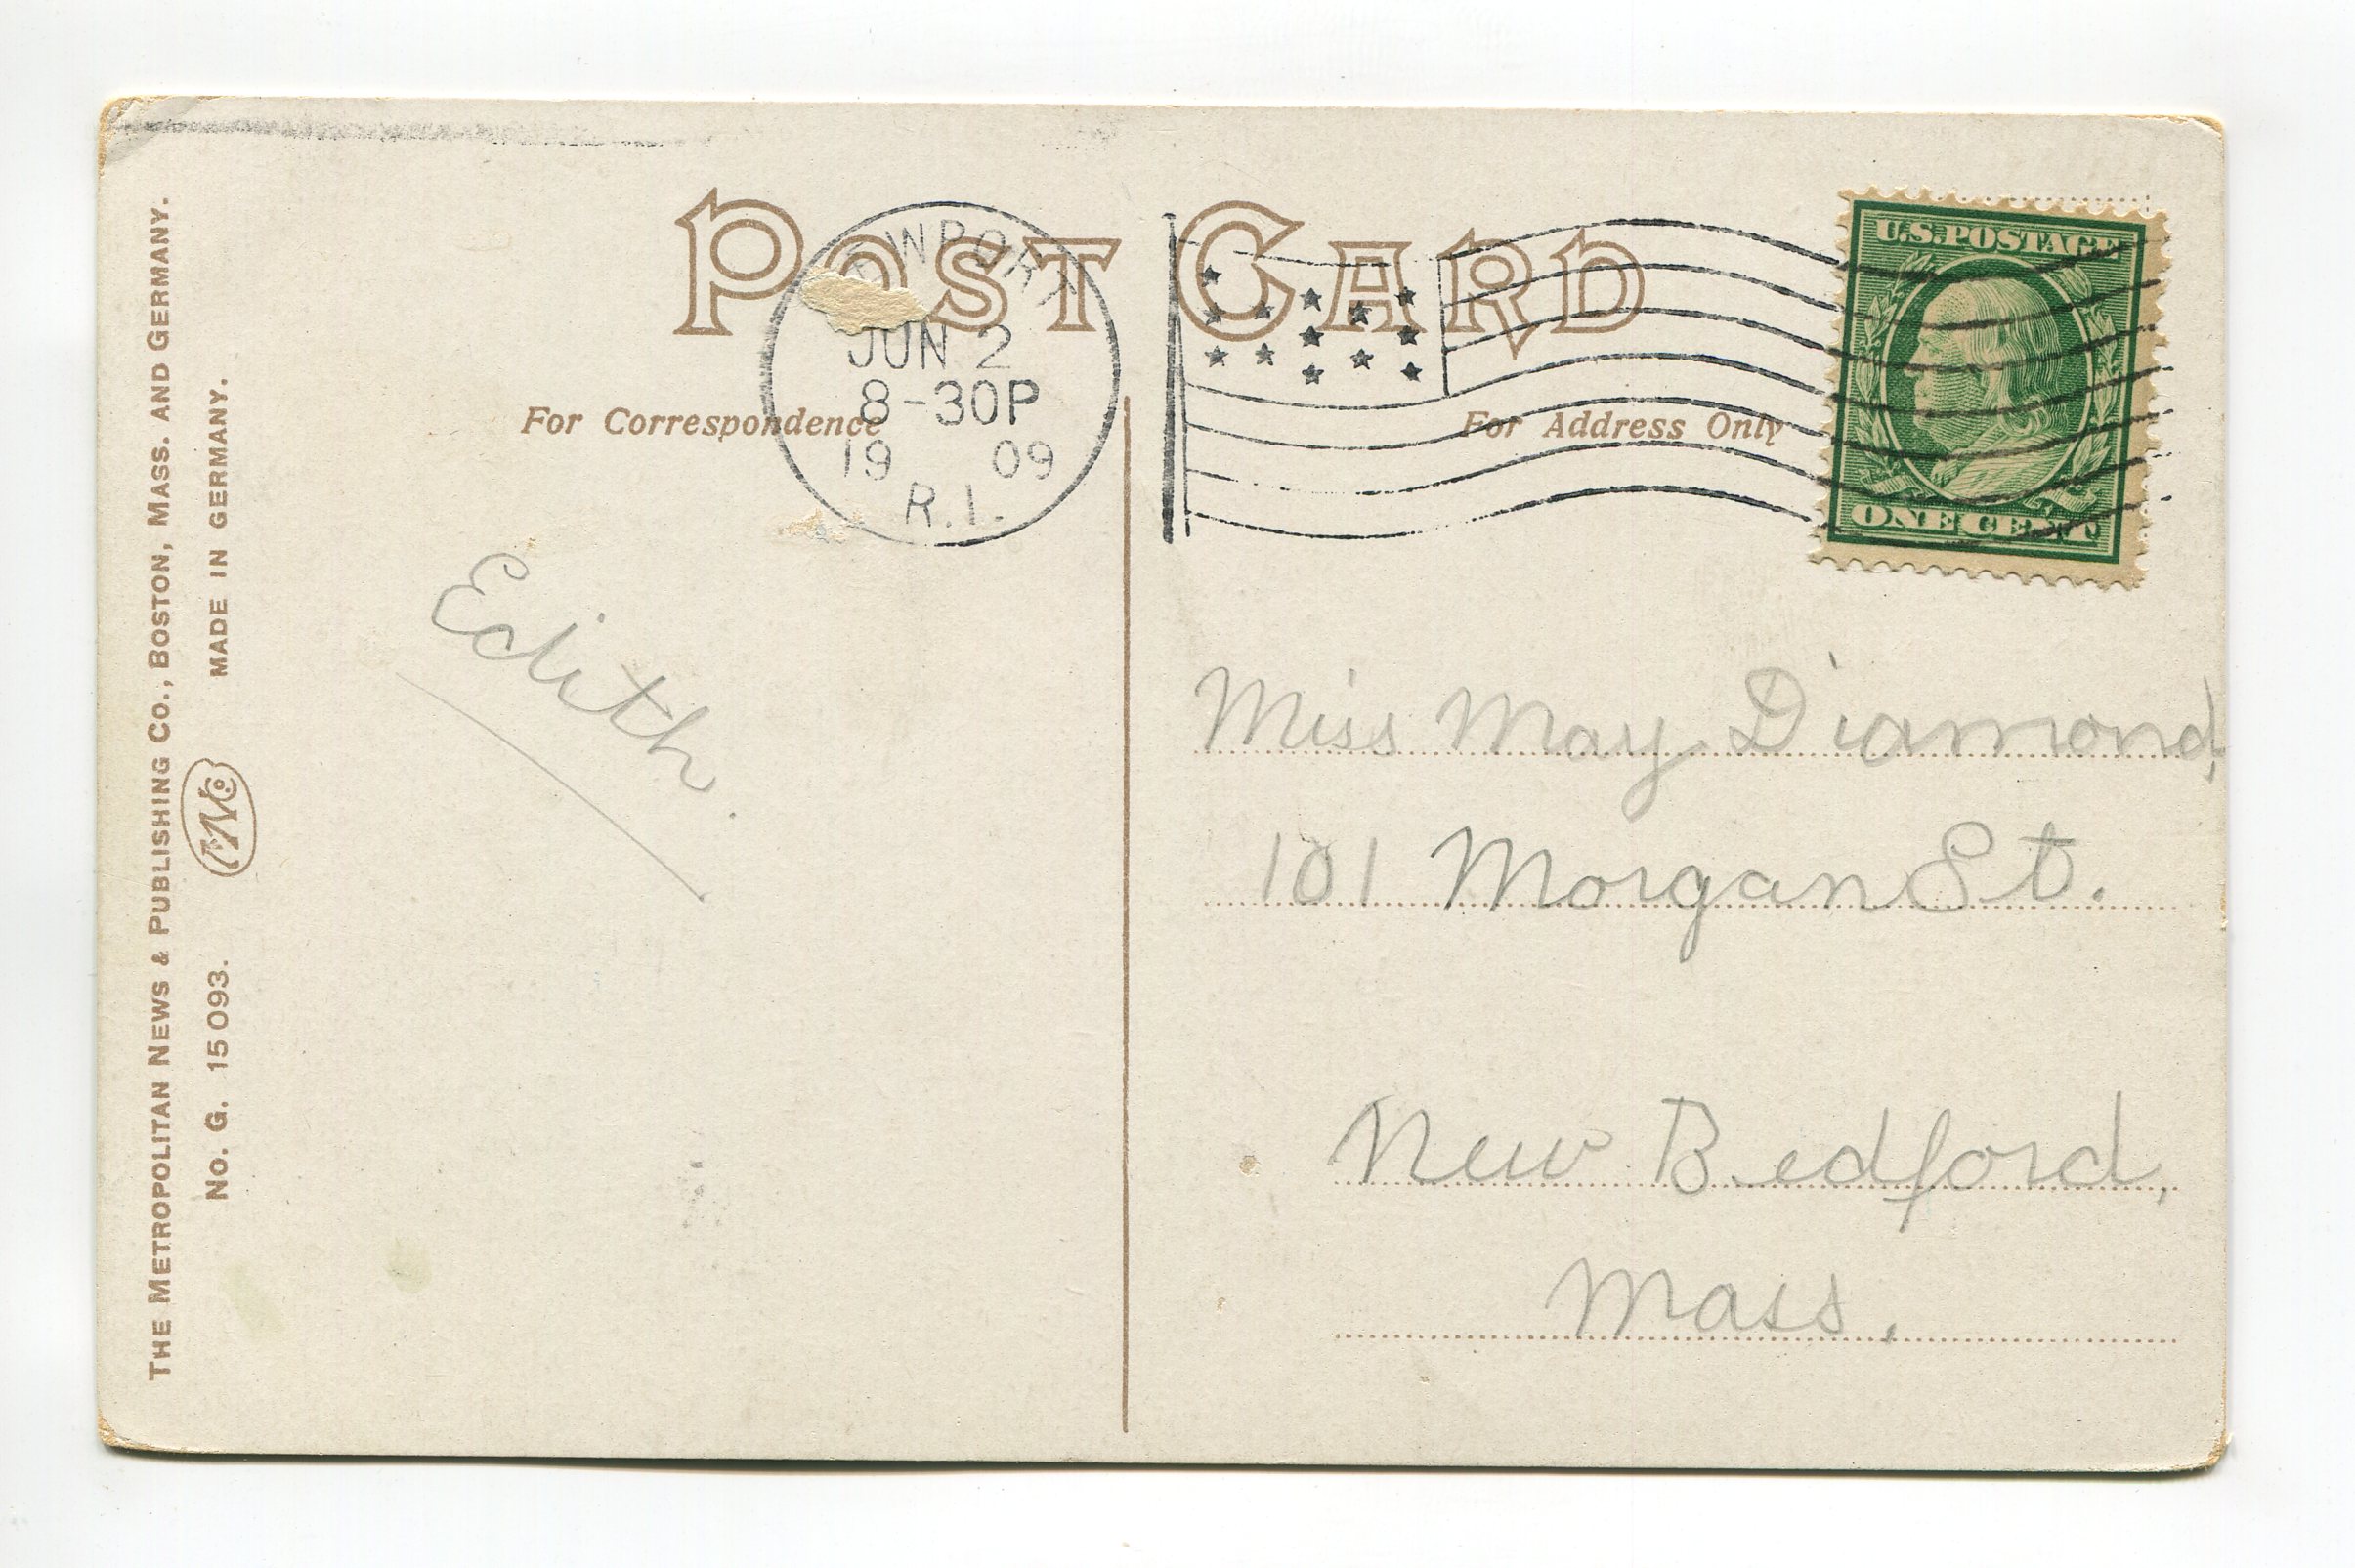 POST CARD
NEWPORT
JUN 2
8-30P
19 09
R.I.
U.S. POSTAGE
ONE CENT
For Correspondence
For Address Only
Edith.
Miss May Diamond,
101 Morgan St.
New Bedford,
Mass.
THE METROPOLITAN NEWS & PUBLISHING CO., BOSTON, MASS. AND GERMANY.
No. G. 15 093.
MADE IN GERMANY.